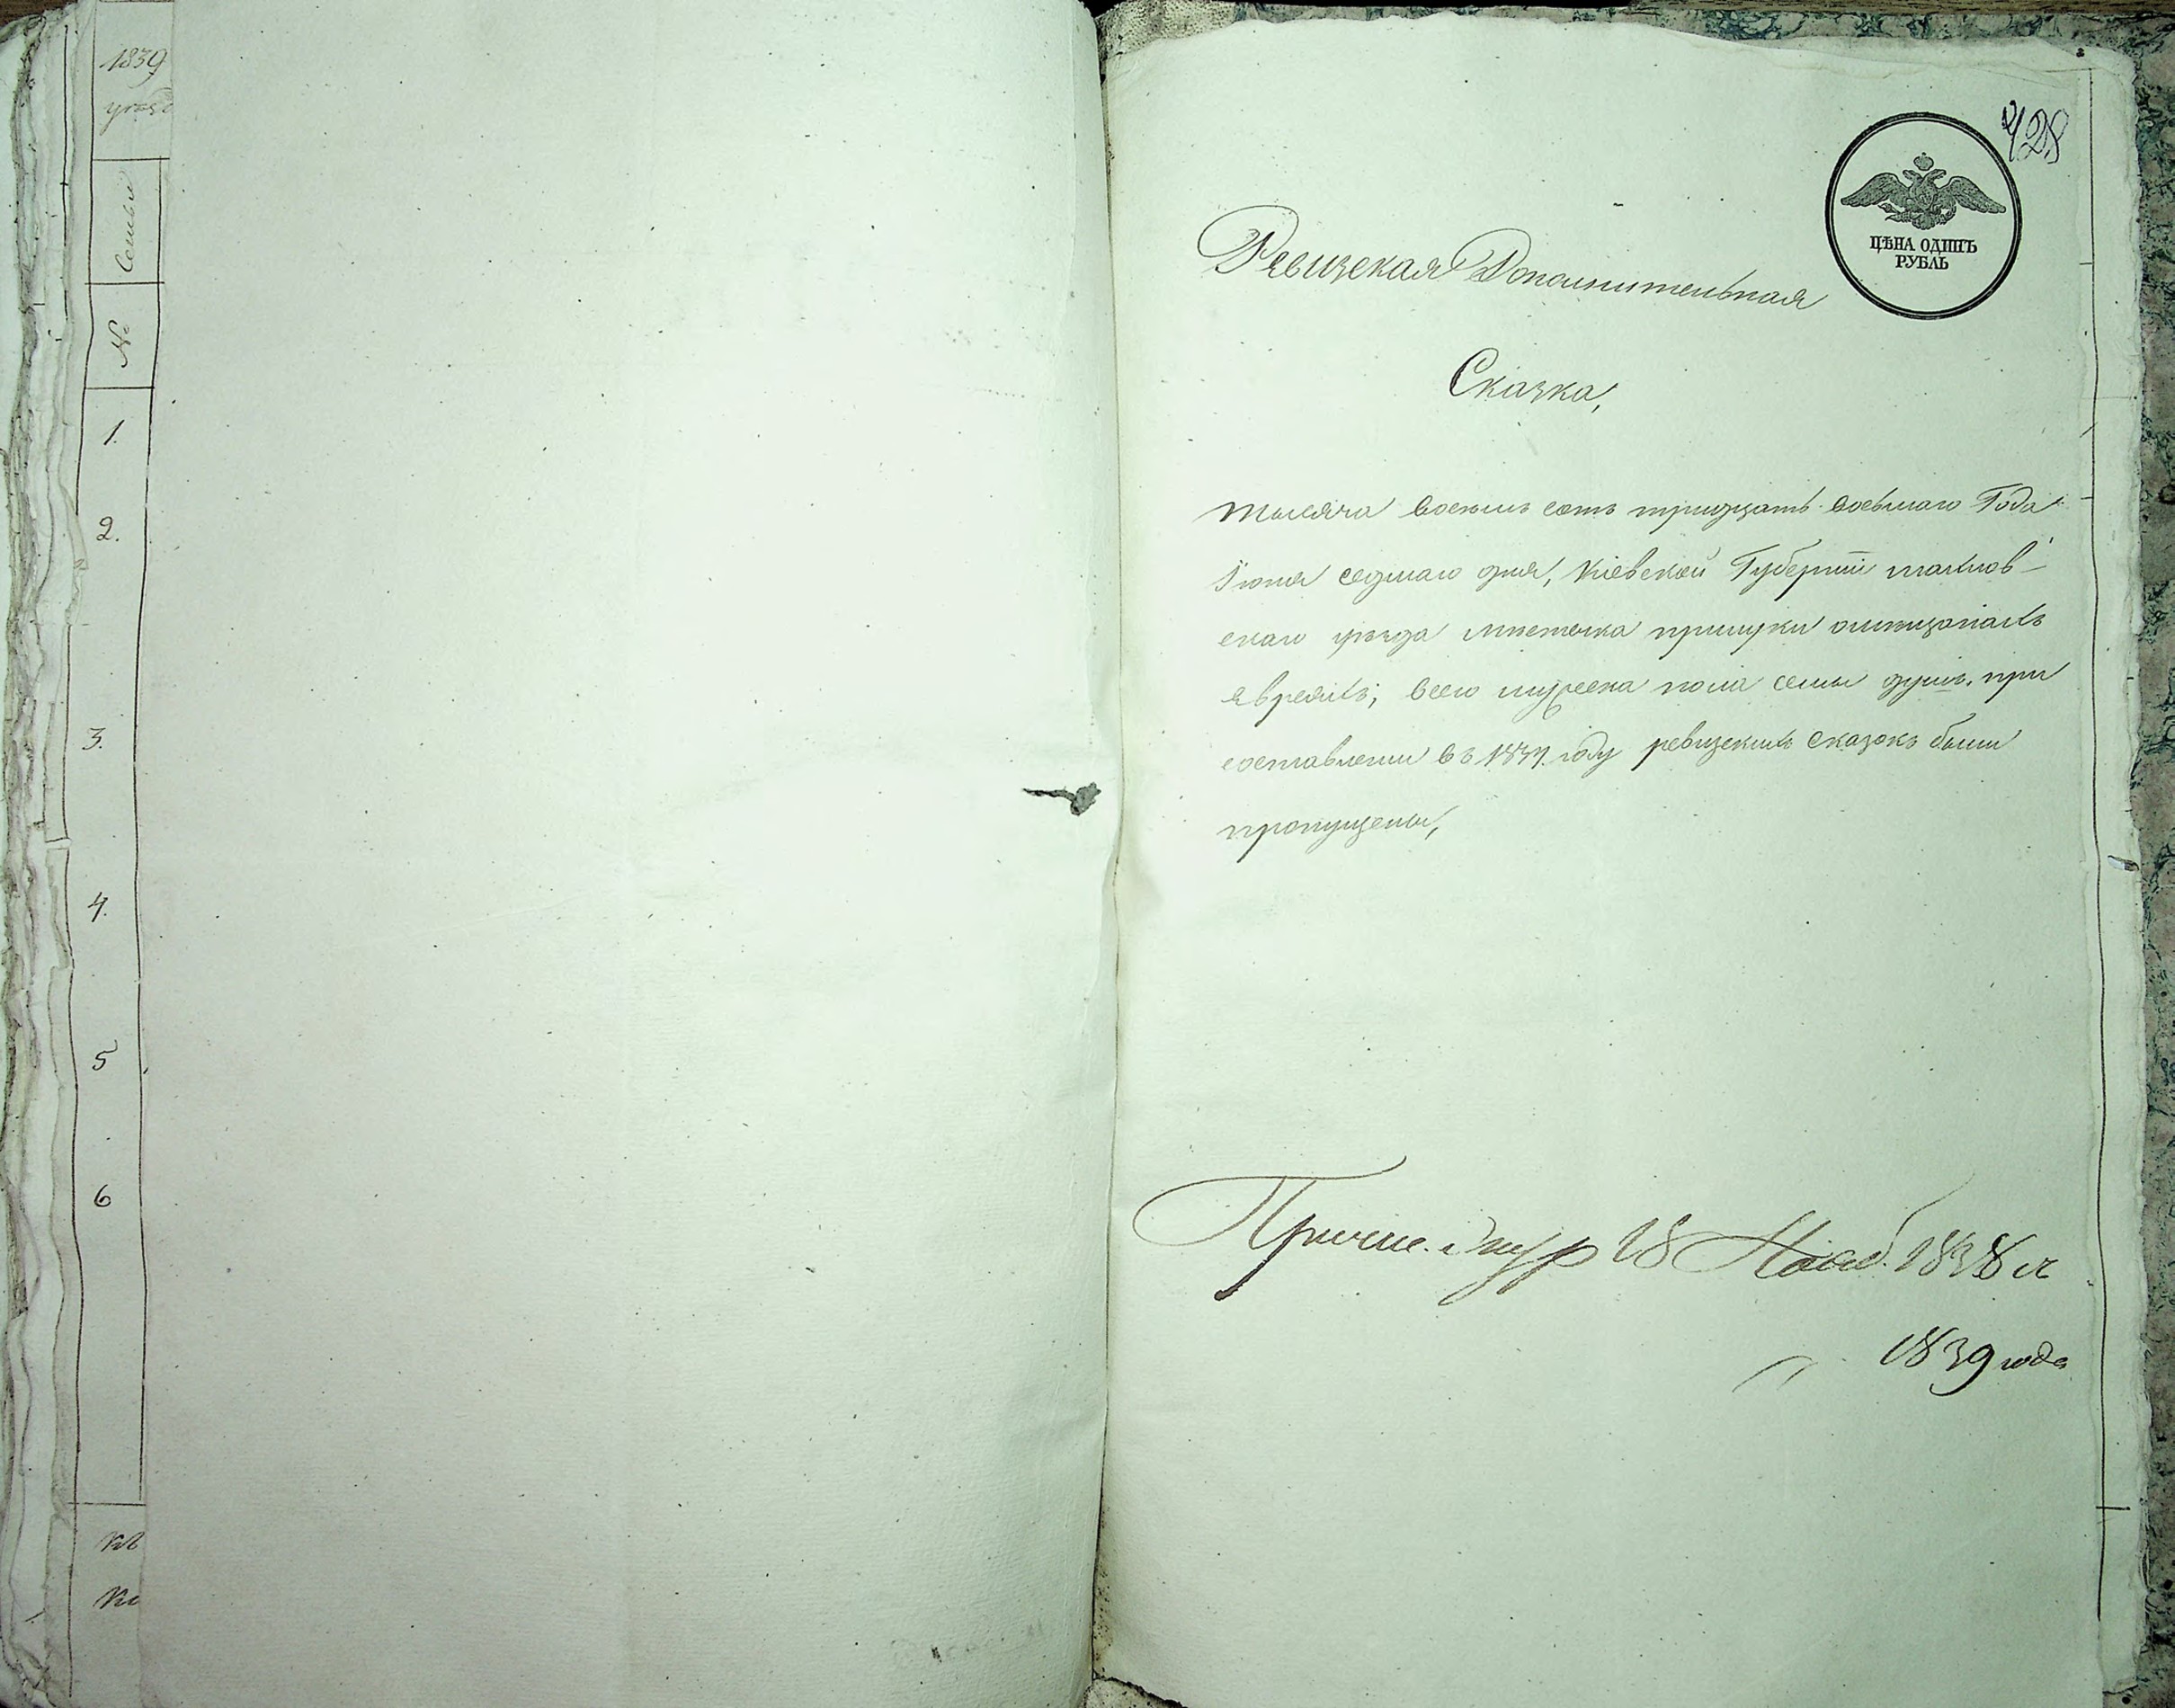 1839
Семьи
№
1.
2.
3.
4.
5
6
428
ЦѢНА ОДИНЪ
РУБЛЬ
Ревизская Дополнительная
Сказка,
тысяча восемь сотъ тридцать восьмаго Года
Іюня седмаго дня, Кіевской Губерніи
скаго уѣзда мѣстечка
евреяхъ; всего мужеска пола семь душъ. при
составлении въ 1834. году ревизскихъ сказокъ были
пропущены,
Причис. 18 Нояб. 1838 съ
1839 года